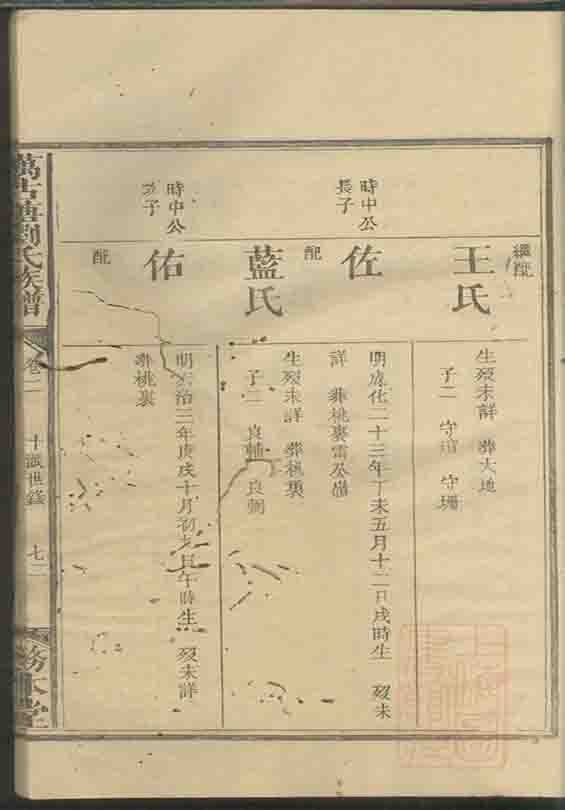 繼配
王氏
生歿未詳 葬大地
子二 守 守珊
時中公
長子
佐
明成化二十三年丁未五月十二日戌時生 歿未
詳 葬桃裏雷公嶺
配
藍氏
生歿未詳 葬桃裏
子二 良輔 良弼
時中公
次子
佑
明弘治三年庚戌十月初九日午時生 歿未詳
葬桃裏
配
萬古塘劉氏族譜
卷二
十派世錄
七二
務本堂